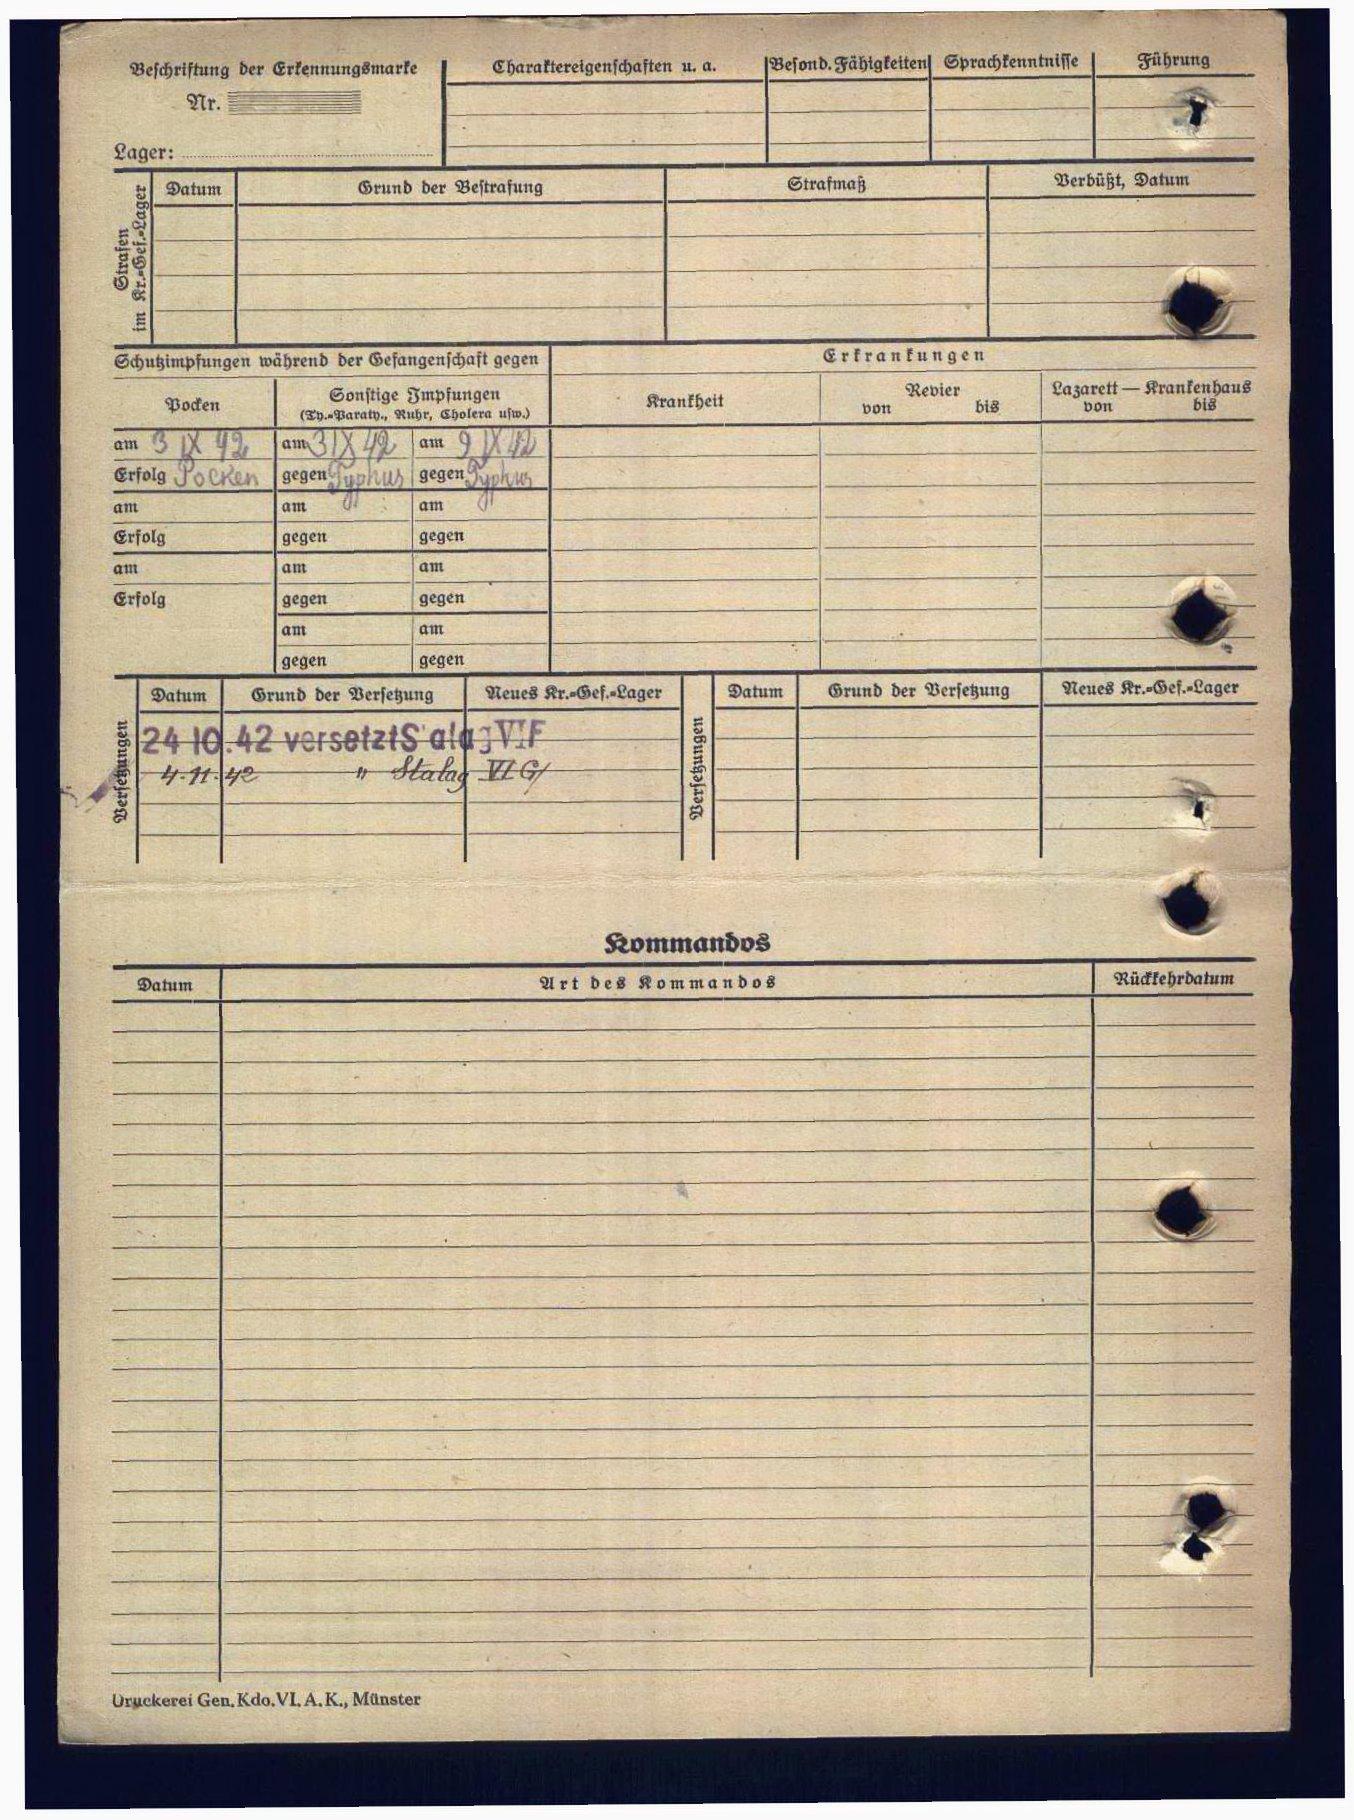 Beschriftung der Erkennungsmarke
Nr.
Lager:
Charaktereigenschaften u. a.
Besond. Fähigkeiten
Sprachkenntnisse
Führung
Strafen
im Kr.=Gef.=Lager
Datum
Grund der Bestrafung
Strafmaß
Verbüßt, Datum
Schutzimpfungen während der Gefangenschaft gegen
Erkrankungen
Pocken
Sonstige Impfungen
(Ty.=Paraty., Ruhr, Cholera usw.)
Krankheit
Revier
von bis
Lazarett — Krankenhaus
von bis
am 3 IX 42 am 3 IX 42 am 9 IX 42
Erfolg Pocken gegen Typhus gegen Typhus
am am am
Erfolg gegen gegen
am am am
Erfolg gegen gegen
am am
gegen gegen
Versetzungen
Datum Grund der Versetzung Neues Kr.=Gef.=Lager
24 10. 42 versetzt S alag VI F
4. 11. 42 " Stalag VI G/
Versetzungen
Datum Grund der Versetzung Neues Kr.=Gef.=Lager
Kommandos
Datum Art des Kommandos Rückkehrdatum
Druckerei Gen. Kdo. VI. A. K., Münster